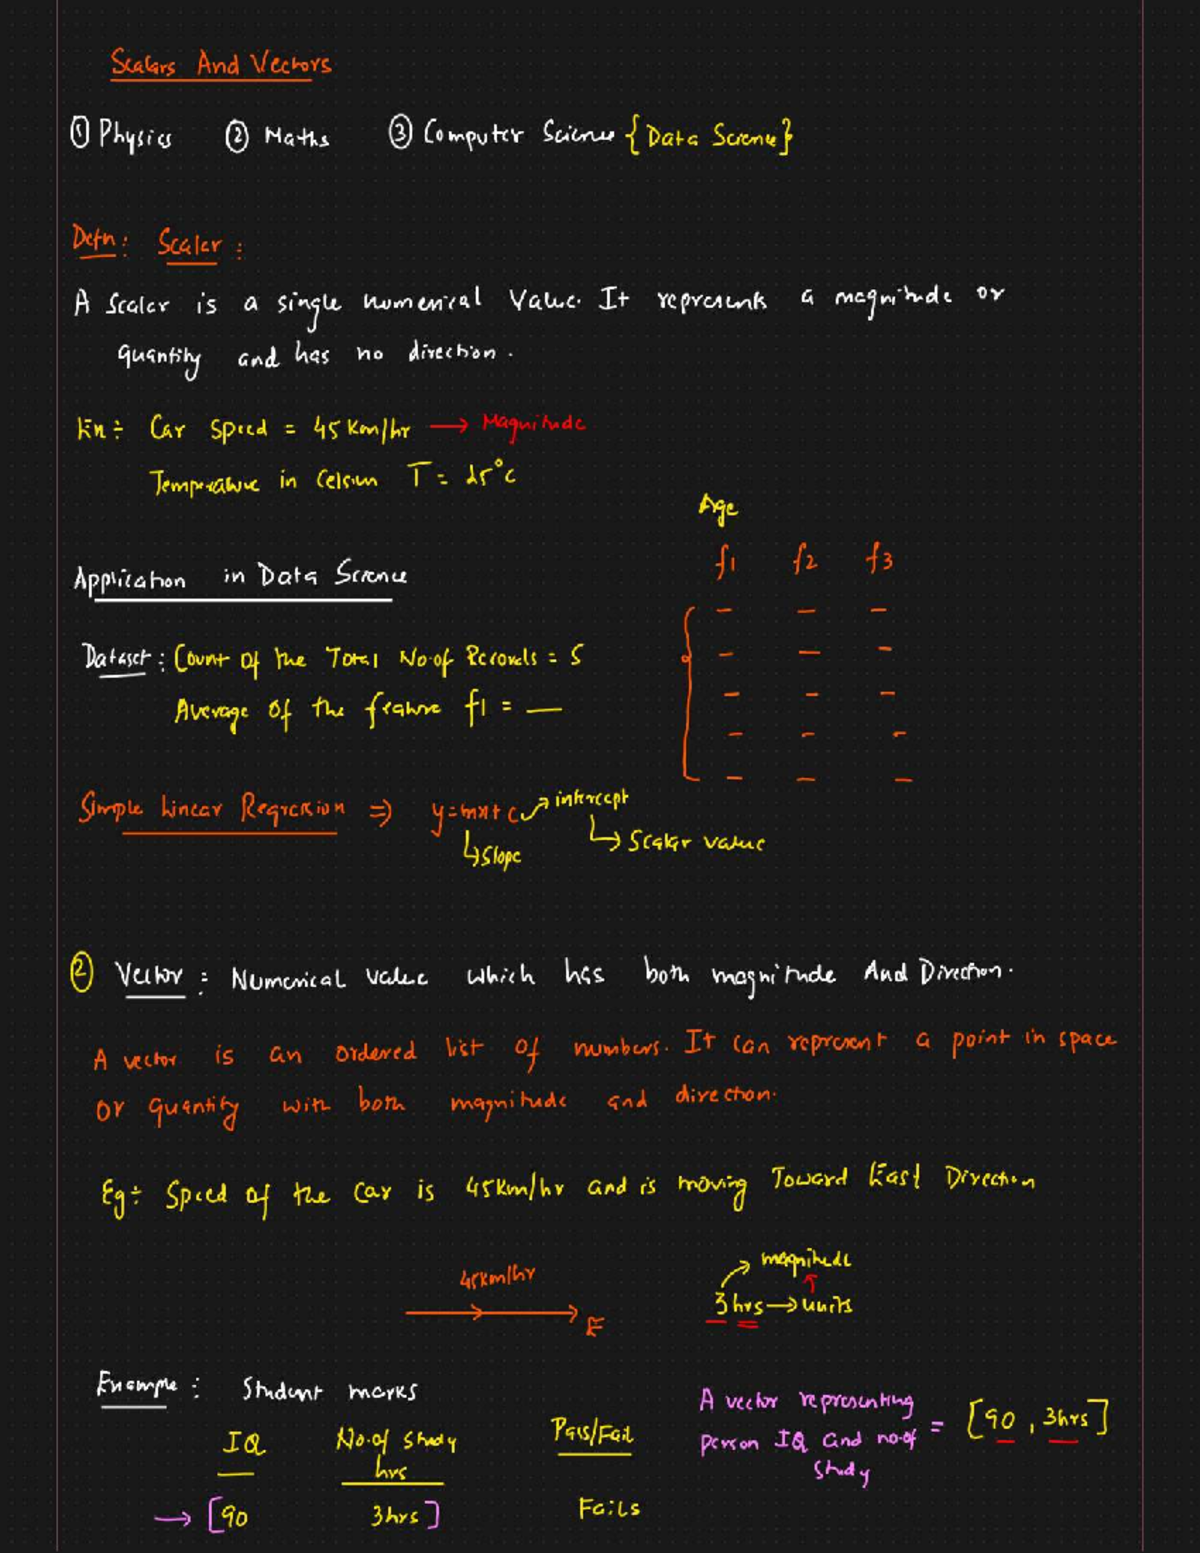 Scalars And Vectors
① Physics ② Maths ③ Computer Science {Data Science}
Defn: Scalar:
A Scalar is a single numerical Value. It represents a magnitude or
quantity and has no direction.
Ex÷ Car Speed = 45 Km/hr → Magnitude
Temperature in Celsius T = 25°C
Age
f1 f2 f3
Application in Data Science
Dataset: Count of the Total No. of Records = 5
Average of the feature f1 = —
Simple Linear Regression ⇒ y=mx+c → intercept
↳ Slope ↳ Scalar value
② Vector: Numerical value which has both magnitude And Direction.
A vector is an ordered list of numbers. It can represent a point in space
or quantity with both magnitude and direction.
Eg÷ Speed of the Car is 45km/hr and is moving Toward East Direction
45km/hr → E
magnitude
3 hrs → units
Example: Student marks
IQ No. of Study hrs Pass/Fail
→ [90 3hrs] Fails
A vector representing
person IQ and no of = [90, 3hrs]
Study